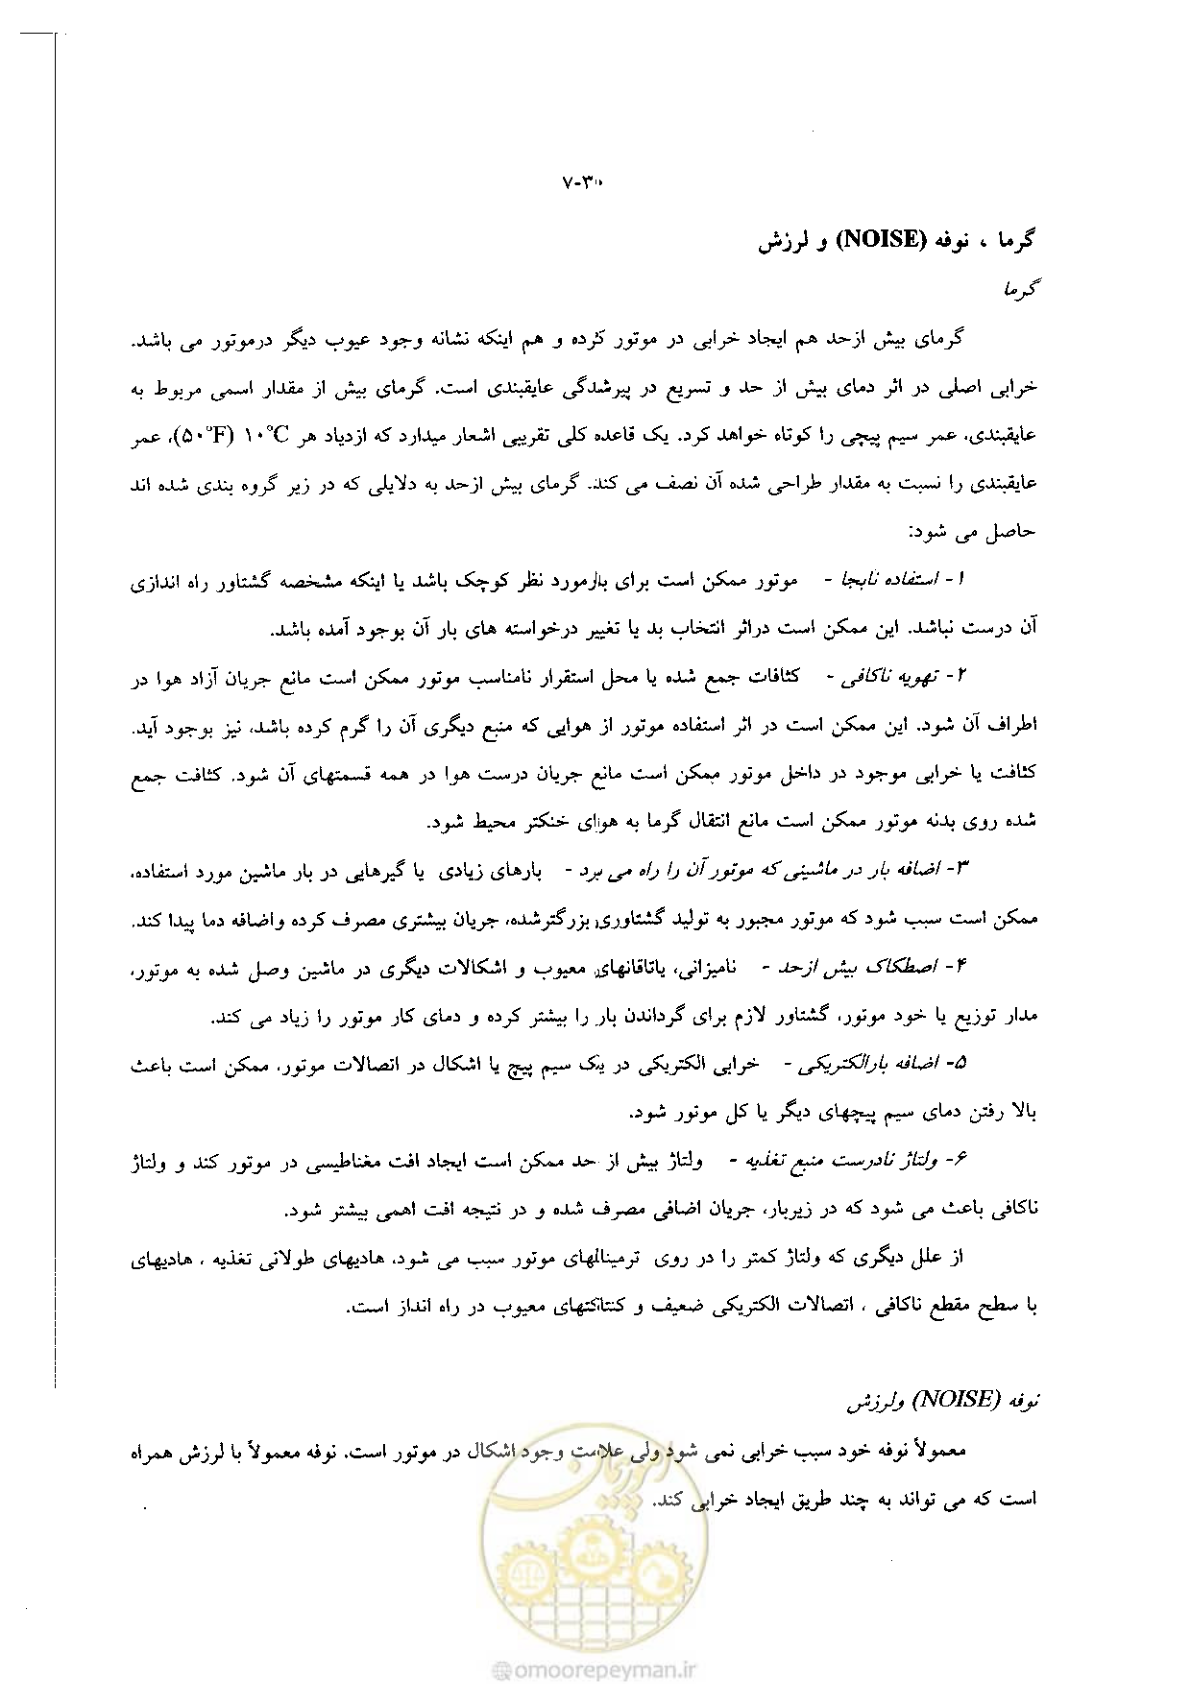 ۷-۳۰
گرما ، نوفه (NOISE) و لرزش
گرما
گرمای بیش ازحد هم ایجاد خرابی در موتور کرده و هم اینکه نشانه وجود عیوب دیگر درموتور می باشد.
خرابی اصلی در اثر دمای بیش از حد و تسریع در پیرشدگی عایقبندی است. گرمای بیش از مقدار اسمی مربوط به
عایقبندی، عمر سیم پیچی را کوتاه خواهد کرد. یک قاعده کلی تقریبی اشعار میدارد که ازدیاد هر ۱۰°C (۵۰°F)، عمر
عایقبندی را نسبت به مقدار طراحی شده آن نصف می کند. گرمای بیش ازحد به دلایلی که در زیر گروه بندی شده اند
حاصل می شود:
۱- استفاده نابجا - موتور ممکن است برای بارمورد نظر کوچک باشد یا اینکه مشخصه گشتاور راه اندازی
آن درست نباشد. این ممکن است دراثر انتخاب بد یا تغییر درخواسته های بار آن بوجود آمده باشد.
۲- تهویه ناکافی - کثافات جمع شده یا محل استقرار نامناسب موتور ممکن است مانع جریان آزاد هوا در
اطراف آن شود. این ممکن است در اثر استفاده موتور از هوایی که منبع دیگری آن را گرم کرده باشد، نیز بوجود آید.
کثافت یا خرابی موجود در داخل موتور ممکن است مانع جریان درست هوا در همه قسمتهای آن شود. کثافت جمع
شده روی بدنه موتور ممکن است مانع انتقال گرما به هوای خنکتر محیط شود.
۳- اضافه بار در ماشینی که موتور آن را راه می برد - بارهای زیادی یا گیرهایی در بار ماشین مورد استفاده،
ممکن است سبب شود که موتور مجبور به تولید گشتاوری بزرگترشده، جریان بیشتری مصرف کرده واضافه دما پیدا کند.
۴- اصطکاک بیش ازحد - نامیزانی، یاتاقانهای معیوب و اشکالات دیگری در ماشین وصل شده به موتور،
مدار توزیع یا خود موتور، گشتاور لازم برای گرداندن بار را بیشتر کرده و دمای کار موتور را زیاد می کند.
۵- اضافه بارالکتریکی - خرابی الکتریکی در یک سیم پیچ یا اشکال در اتصالات موتور، ممکن است باعث
بالا رفتن دمای سیم پیچهای دیگر یا کل موتور شود.
۶- ولتاژ نادرست منبع تغذیه - ولتاژ بیش از حد ممکن است ایجاد افت مغناطیسی در موتور کند و ولتاژ
ناکافی باعث می شود که در زیربار، جریان اضافی مصرف شده و در نتیجه افت اهمی بیشتر شود.
از علل دیگری که ولتاژ کمتر را در روی ترمینالهای موتور سبب می شود، هادیهای طولانی تغذیه ، هادیهای
با سطح مقطع ناکافی ، اتصالات الکتریکی ضعیف و کنتاکتهای معیوب در راه انداز است.
نوفه (NOISE) ولرزش
معمولاً نوفه خود سبب خرابی نمی شود ولی علامت وجود اشکال در موتور است. نوفه معمولاً با لرزش همراه
است که می تواند به چند طریق ایجاد خرابی کند.
امور پیمان
@omoorepeyman.ir